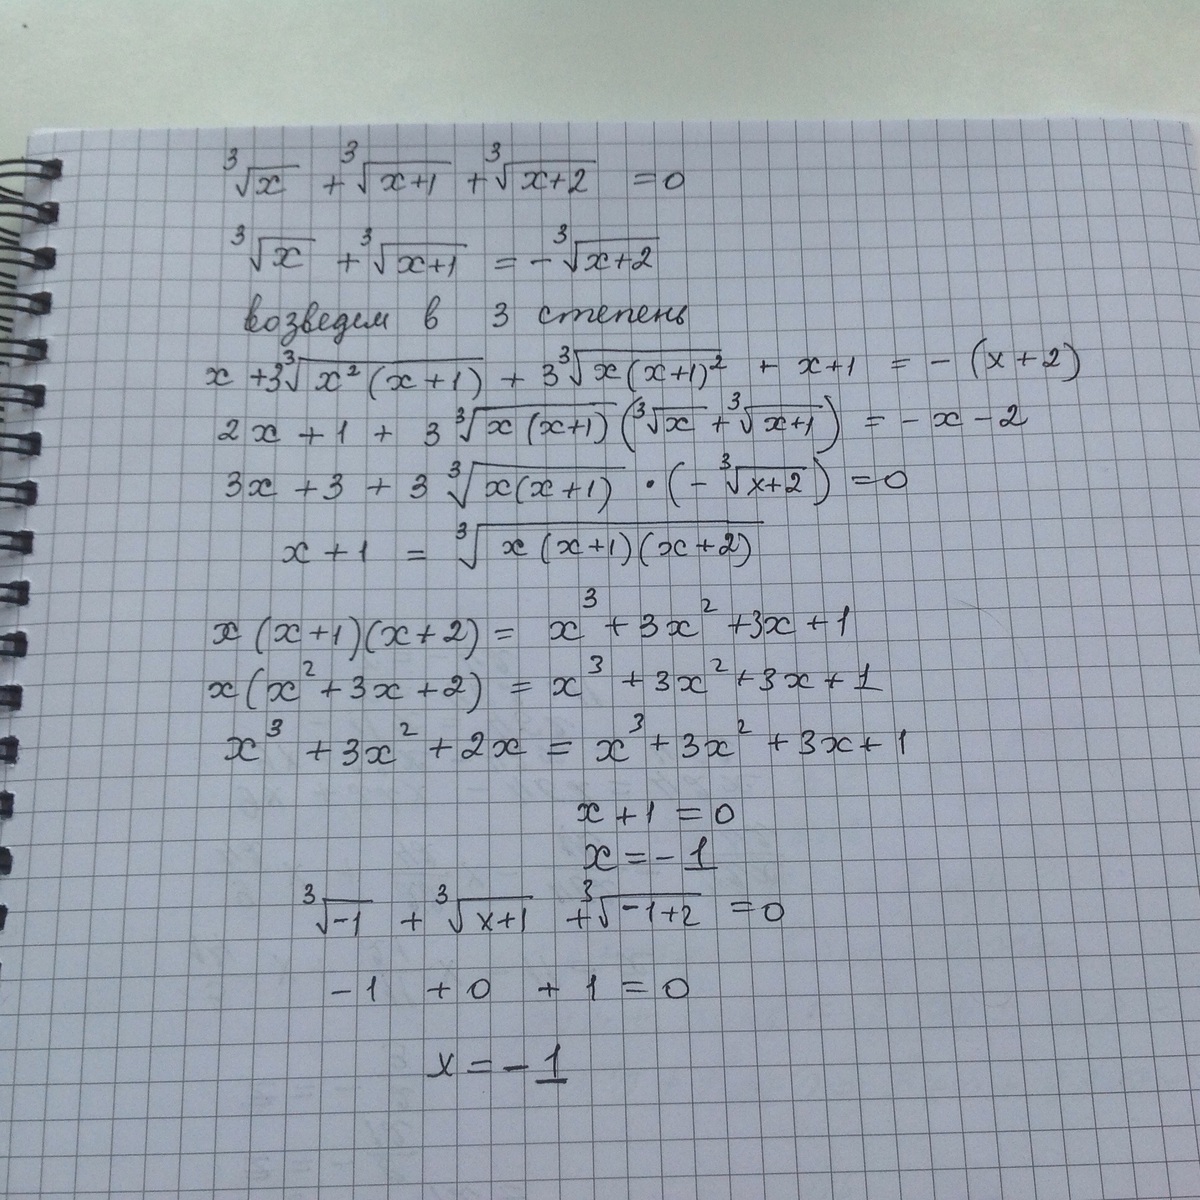 ∛x + ∛(x+1) + ∛(x+2) = 0
∛x + ∛(x+1) = - ∛(x+2)
возведем в 3 степень
x + 3∛(x²(x+1)) + 3∛(x(x+1)²) + x+1 = - (x+2)
2x + 1 + 3∛(x(x+1)) (∛x + ∛(x+1)) = - x - 2
3x + 3 + 3∛(x(x+1)) · (-∛(x+2)) = 0
x + 1 = ∛(x(x+1)(x+2))
x(x+1)(x+2) = x³ + 3x² + 3x + 1
x(x² + 3x + 2) = x³ + 3x² + 3x + 1
x³ + 3x² + 2x = x³ + 3x² + 3x + 1
x + 1 = 0
x = - 1
∛-1 + ∛(x+1) + ∛(-1+2) = 0
- 1 + 0 + 1 = 0
x = - 1